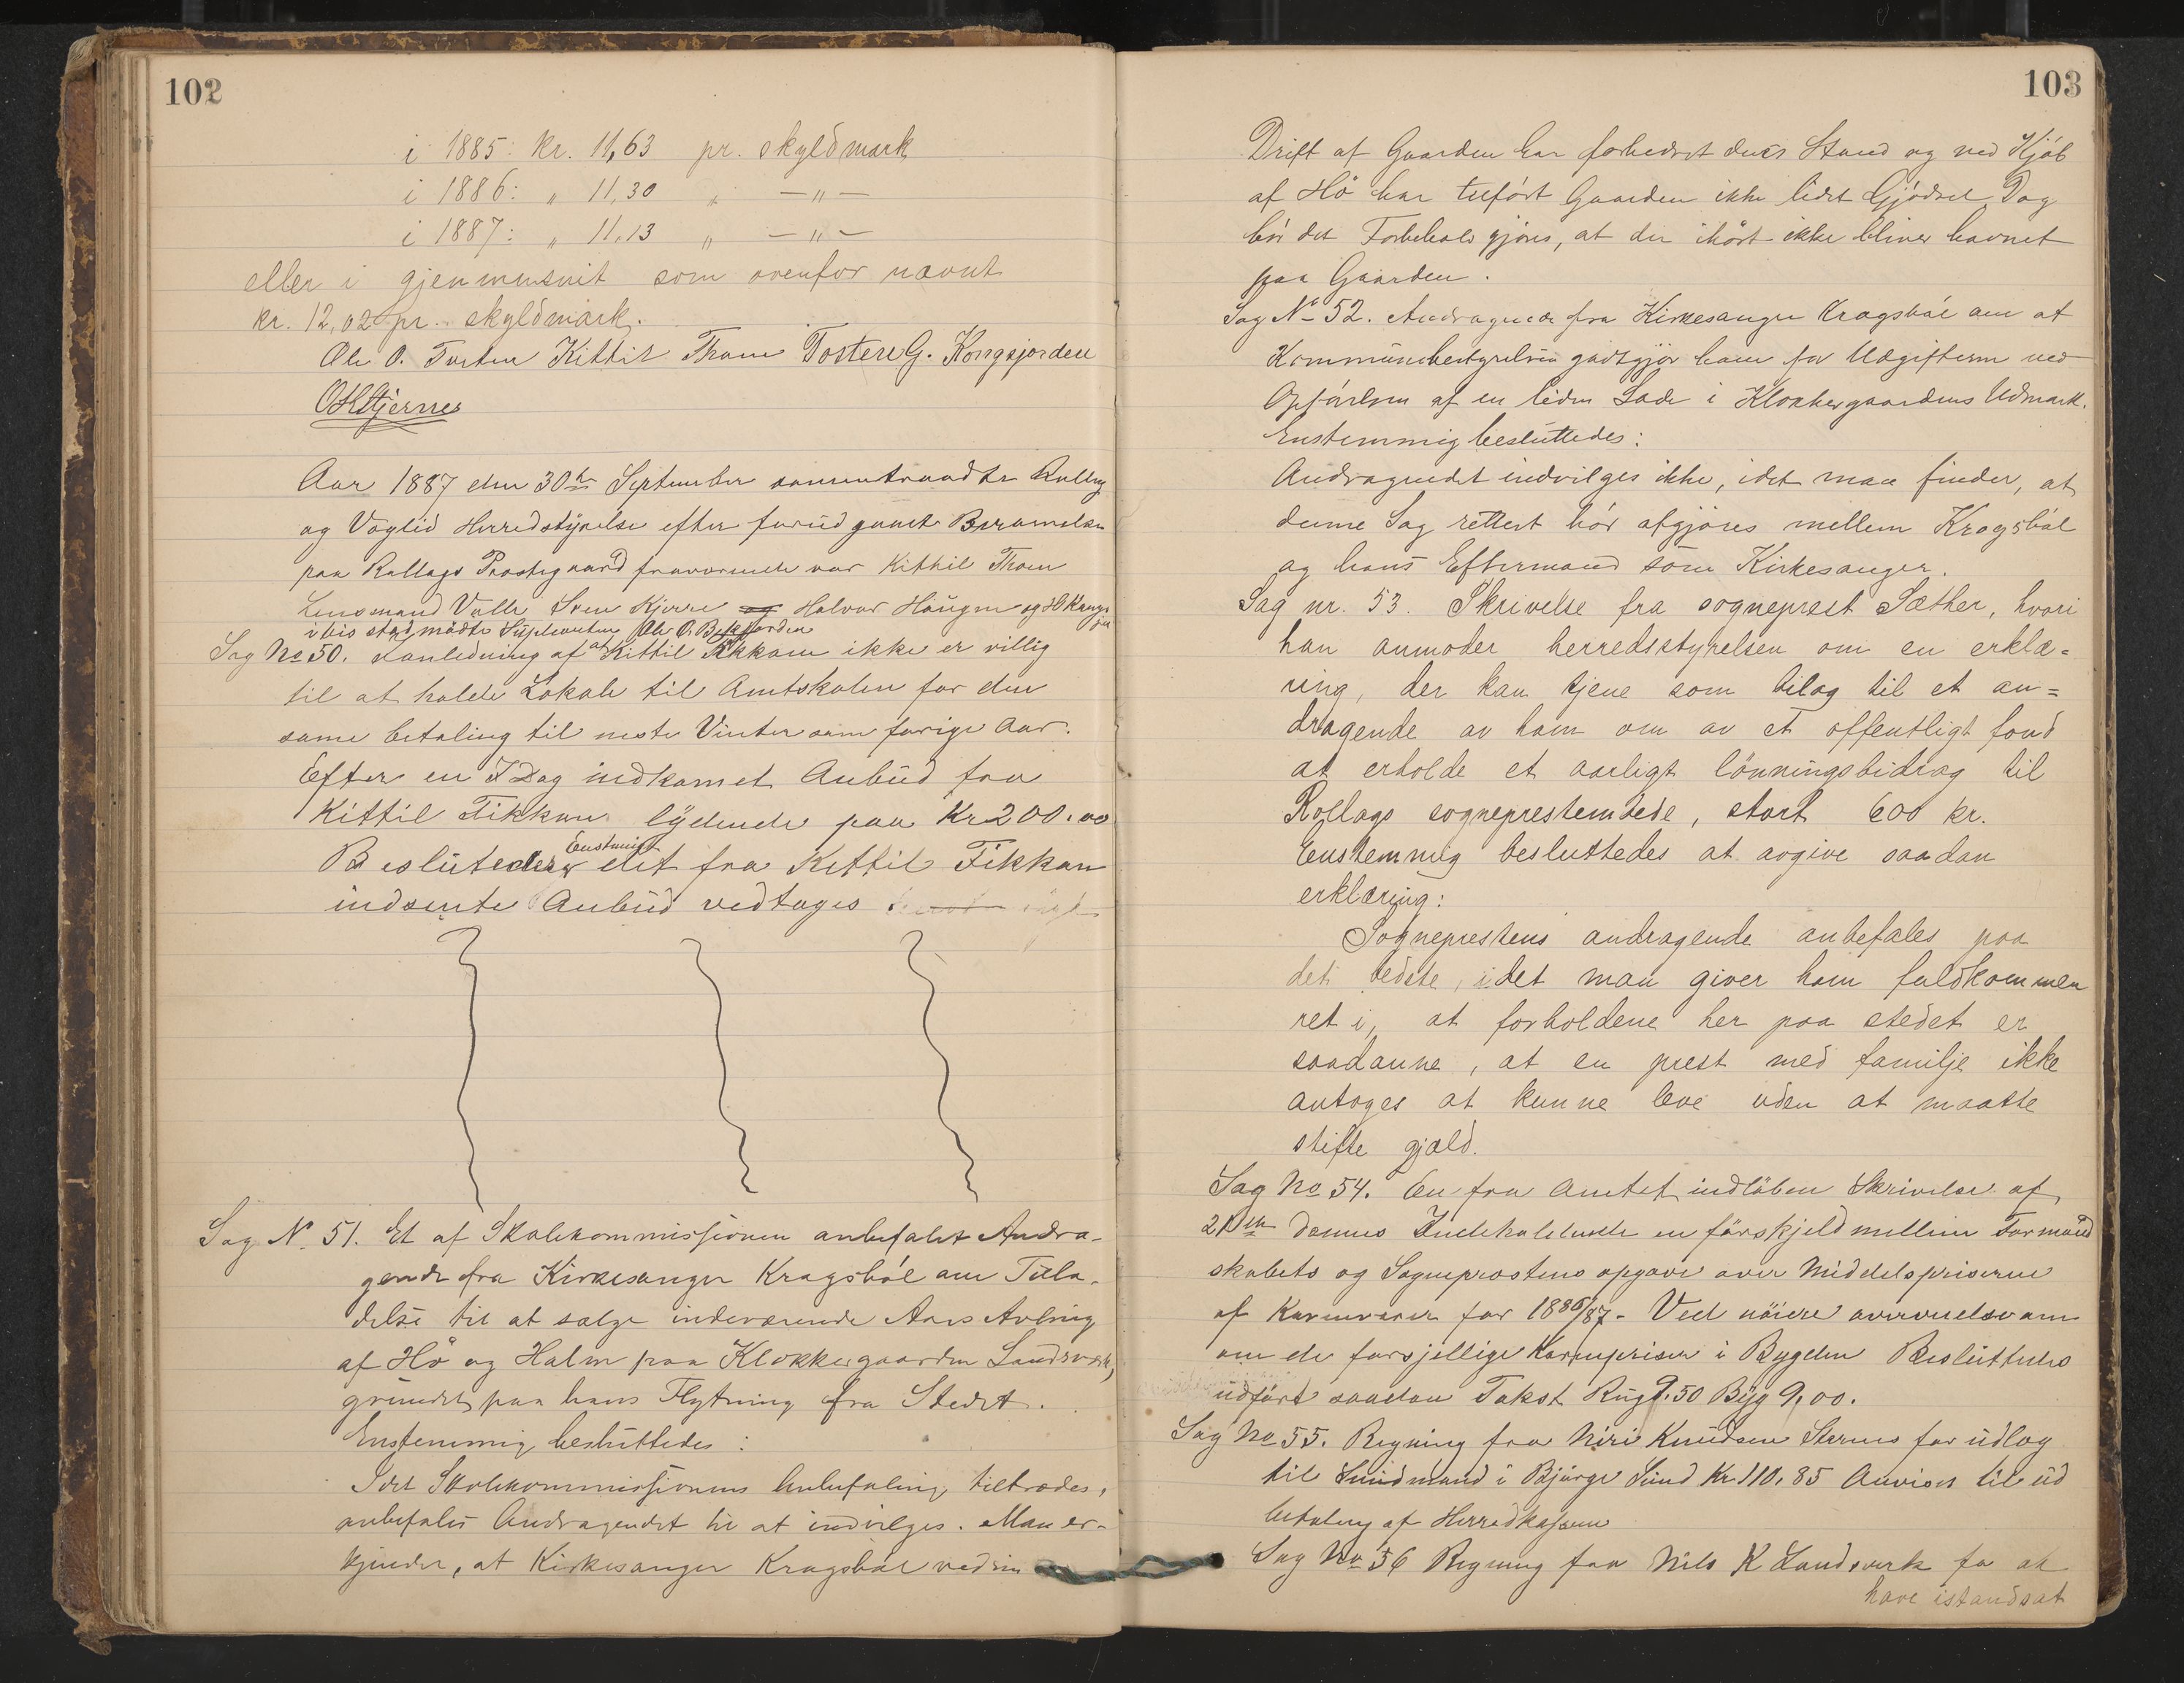 102
i 1885: kr. 11,63 pr. skyldmark
i 1886: „ 11,30 „ —„—
i 1887: „ 11,13 „ —„—
eller i gjennemsnit som ovenfor nævnt
kr. 12,02 pr. skyldmark.
Ole O. Kittil Thom Tosten G. Kongsjorden
Aar 1887 den 30te September sammentraadte Rollag
og Væglid Herredstyrelse efter forud gaaet Berammelse
paa Rollags Prostegaard fraværende var Kittil Thom
Lensmand Valle Sven Kjerre og Halvor Haugen og
i hvis sted mødte Suplianten Ole O.
Sag No 50. I anledning af at Kittil Fikkan ikke er villig
til at holde Lokale til Amtskolen for den
same betaling til neste Vinter som forige Aar.
Efter en I Dag indkomet Anbud fra
Kittil Fikkan lydende paa Kr 200.00
Beslutedes Enstmigt det fra Kittil Fikkan
indsente Anbud vedtages
Sag N. 51. Et af Skolekommissionen anbefalet Andra-
gende fra Kirkesanger Kragsbøl om Tilla-
delse til at sælge indeværende Aars Avling
af Hø og Halm paa Klokkergaarden Landsværk,
grundet paa hans Flytning fra Stedet.
Enstemmig besluttedes:
Idet Skolekommissionens Anbefaling tiltrædes,
anbefales Andragendet til at indvilges. Man er-
kjender, at Kirkesanger Kragsbøl ved sin
103
Drift af Gaarden har forbedret dens Stand og ved Kjøb
af Hø har tilført Gaarden ikke lidet Gjødsel. Dog
bør det Forbehold gjøres, at der ihøst ikke bliver havnet
paa Gaarden.
Sag No 52. Andragende fra Kirkesanger Kragsbøl om at
Kommunebestyrelsen godtgjør ham for Udgifterne ved
Opførelsen af en liden Lade i Klokkergaardens Udmark.
Enstemmig besluttedes:
Andragendet indvilges ikke, idet man finder, at
denne Sag rettest bør afgjøres mellem Kragsbøl
og hans Eftermand som Kirkesanger.
Sag nr. 53. Skrivelse fra sogneprest Sæther, hvori
han anmoder herredsstyrelsen om en erklæ=
ring, der kan tjene som bilag til et an=
dragende av ham om av et offentligt fond
at erholde et aarligt lønningsbidrag til
Rollags sogneprestembede, stort 600 kr.
Enstemmig besluttedes at avgive saadan
erklæring:
Sogneprestens andragende anbefales paa
det bedste, idet man giver ham fuldkommen
ret i, at forholdene her paa stedet er
saadanne, at en prest med familje ikke
antages at kunne leve uden at maatte
stifte gjæld.
Sag No 54. En fra Amtet indløben Skrivelse af
21de dennes Indeholdende en førskjeld mellem Formand
skabets og Sogneprestens opgave over Middelspriserne
af Kornvarer for 1886/87. Ved nøiere overveielse om
om de forsjellige Kornpriser i Bygden Besluttedes
udført saadan Takst Rug 9.50 Byg 9,00.
Sag No 55. Regning fra Niri Knudsen Stærnes for udlog
til Sundmand i Bjørge Sund Kr. 110,85 Anvises til ud
betaling af Herredkassen
Sag No 56 Regning fra Nils K Landsverk for at
have istandsat